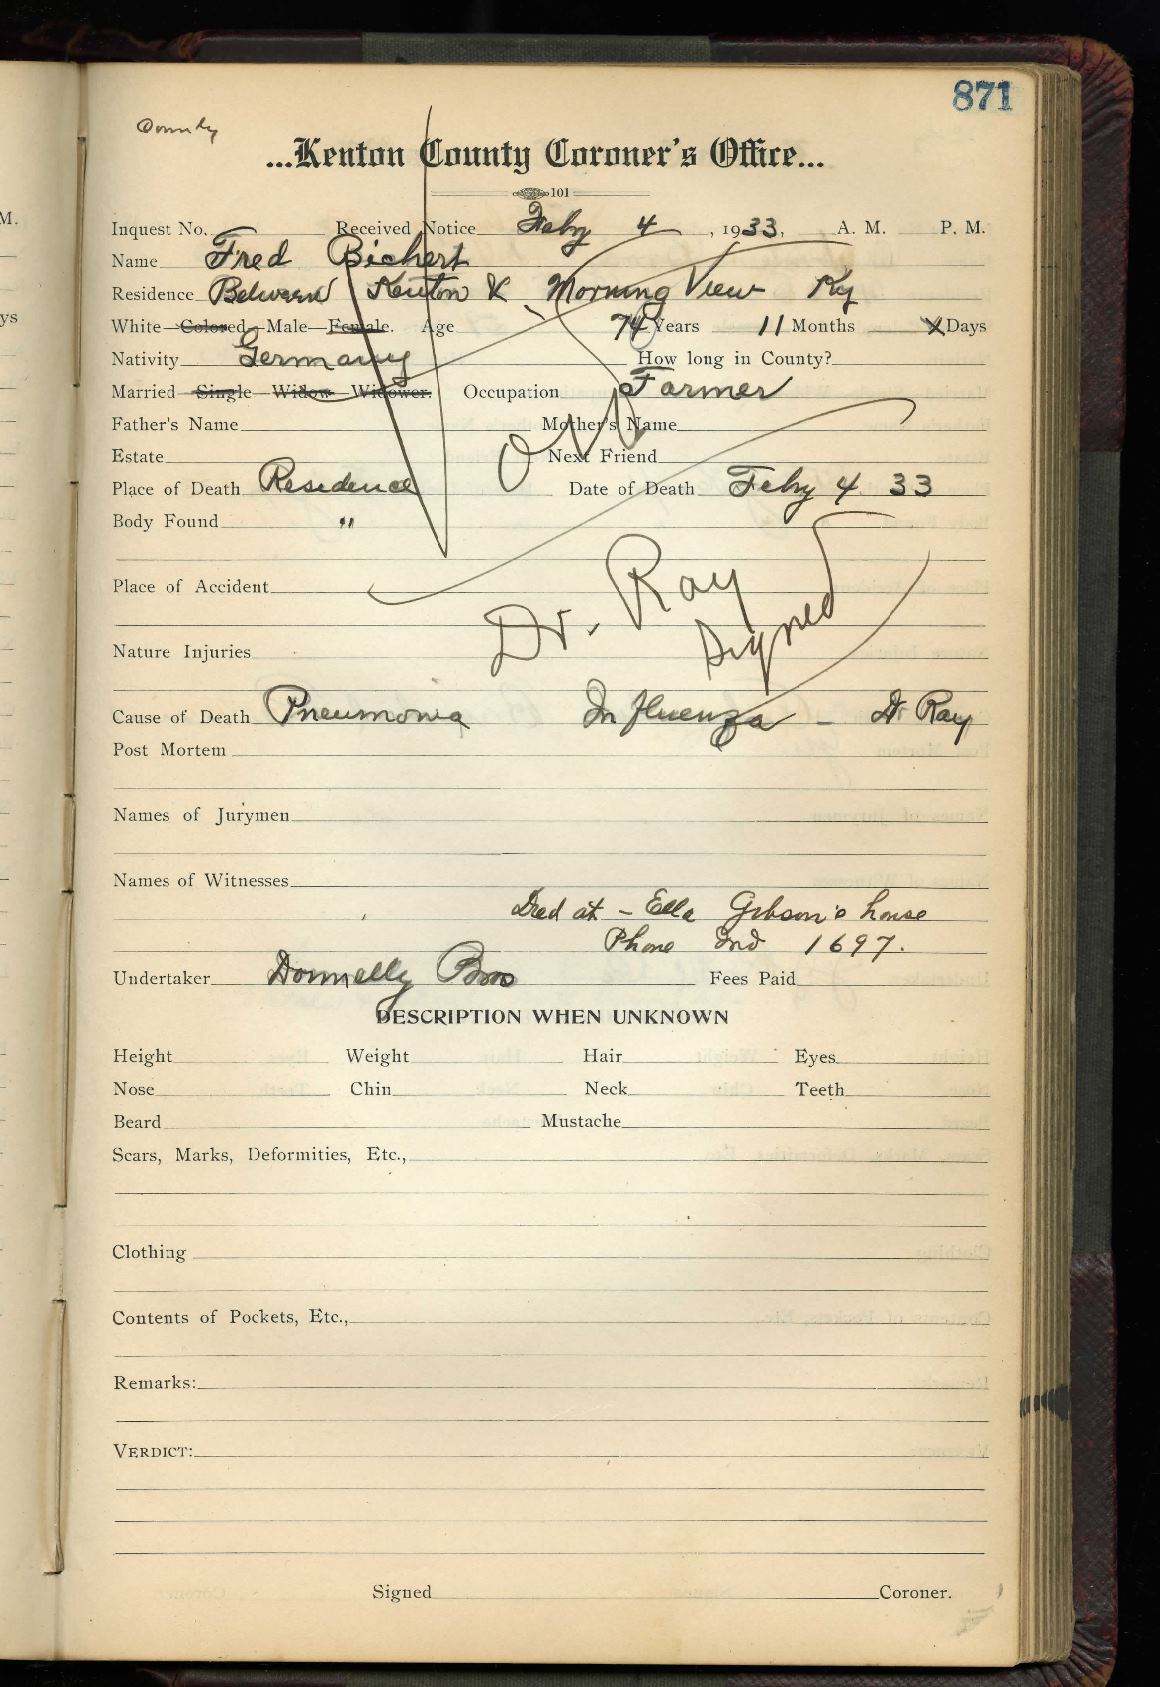 871
County
...Kenton County Coroner's Office...
101
Inquest No. Received Notice Feby 4, 1933, A. M. P. M.
Name Fred Bichert
Residence Between Kenton & Morning View Ky
White—Colored—Male—Female. Age 74 Years 11 Months X Days
Nativity Germany How long in County?
Married—Single—Widow—Widower. Occupation Farmer
Father's Name Mother's Name
Estate Next Friend
Place of Death Residence Date of Death Feby 4 33
Body Found "
Place of Accident
Dr. Ray
Signed
Nature Injuries
Cause of Death Pneumonia Influenza - Dr Ray
Post Mortem
Names of Jurymen
Names of Witnesses
Died at - Ella Gibson's house
Phone Ind 1697.
Undertaker Donnelly Bros Fees Paid
DESCRIPTION WHEN UNKNOWN
Height Weight Hair Eyes
Nose Chin Neck Teeth
Beard Mustache
Scars, Marks, Deformities, Etc.,
Clothing
Contents of Pockets, Etc.,
Remarks:
VERDICT:
Signed Coroner.